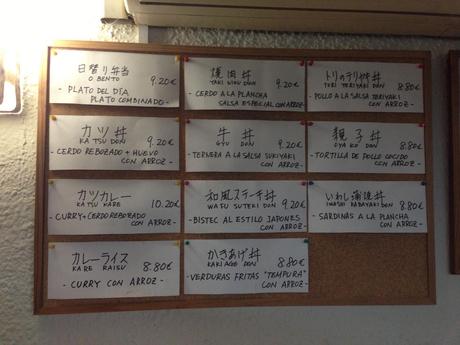 日替り弁当
O BENTO 9.20€
- PLATO DEL DÍA
PLATO COMBINADO -
焼肉丼
YAKI NIKU DON 9.20€
- CERDO A LA PLANCHA
SALSA ESPECIAL CON ARROZ -
トリのテリヤキ丼
TORI TERIYAKI DON 8.80€
- POLLO A LA SALSA TERIYAKI
CON ARROZ -
カツ丼
KA TSU DON 9.20€
- CERDO REBOZADO + HUEVO
CON ARROZ -
牛丼
GYU DON 9.20€
- TERNERA A LA SALSA SUKIYAKI
CON ARROZ -
親子丼
OYA KO DON 8.80€
- TORTILLA DE POLLO COCIDO
CON ARROZ -
カツカレー
KATSU KARE 10.20€
- CURRY + CERDO REBOZADO
CON ARROZ -
和風ステーキ丼
WAFU SUTEKI DON 9.20€
- BISTEC AL ESTILO JAPONES
CON ARROZ -
いわし蒲焼丼
IWASHI KABAYAKI DON 8.80€
- SARDINAS A LA PLANCHA
CON ARROZ -
カレーライス
KARE RAISU 8.80€
- CURRY CON ARROZ -
かきあげ丼
KAKI AGE DON 8.80€
- VERDURAS FRITAS "TEMPURA"
CON ARROZ -